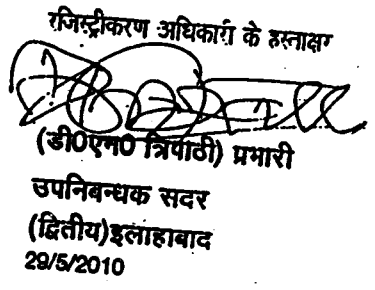 रजिस्ट्रीकरण अधिकारी के हस्ताक्षर
(डी0एन0 त्रिपाठी) प्रभारी
उपनिबन्धक सदर
(द्वितीय)इलाहाबाद
29/5/2010